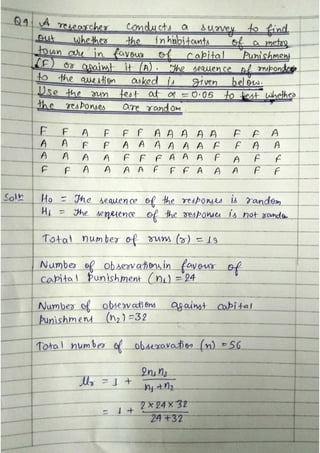 Q1 A researcher conducts a survey to find
out whether the inhabitants of a metro
town are in favour of capital Punishment
(F) or against it (A). The sequence of responde
to the question asked is given below.
Use the run test at α = 0.05 to test whether
the responses are random
F F A F F F A A A A A F F A
A A F F A A A A A A F F A A
A A A A F F F A A A F A F F
F F A A A A F F F A A A F F
Solⁿ H₀ = The sequence of the responses is random
H₁ = The sequence of the responses is not random
Total number of runs (r) = 19
Number of observations in favour of
capital Punishment (n₁) = 24
Number of observations against capital
Punishment (n₂) = 32
Total number of observation (n) = 56
μr = 1 + 2n₁n₂ / n₁ + n₂
= 1 + 2 × 24 × 32 / 24 + 32